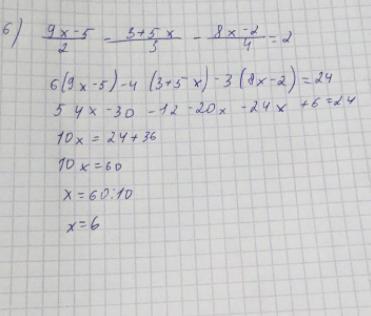 6) 9x-5/2 - 3+5x/3 - 8x-2/4 = 2
6(9x-5)-4(3+5x)-3(8x-2)=24
54x-30-12-20x-24x+6=24
10x=24+36
10x=60
x=60:10
x=6